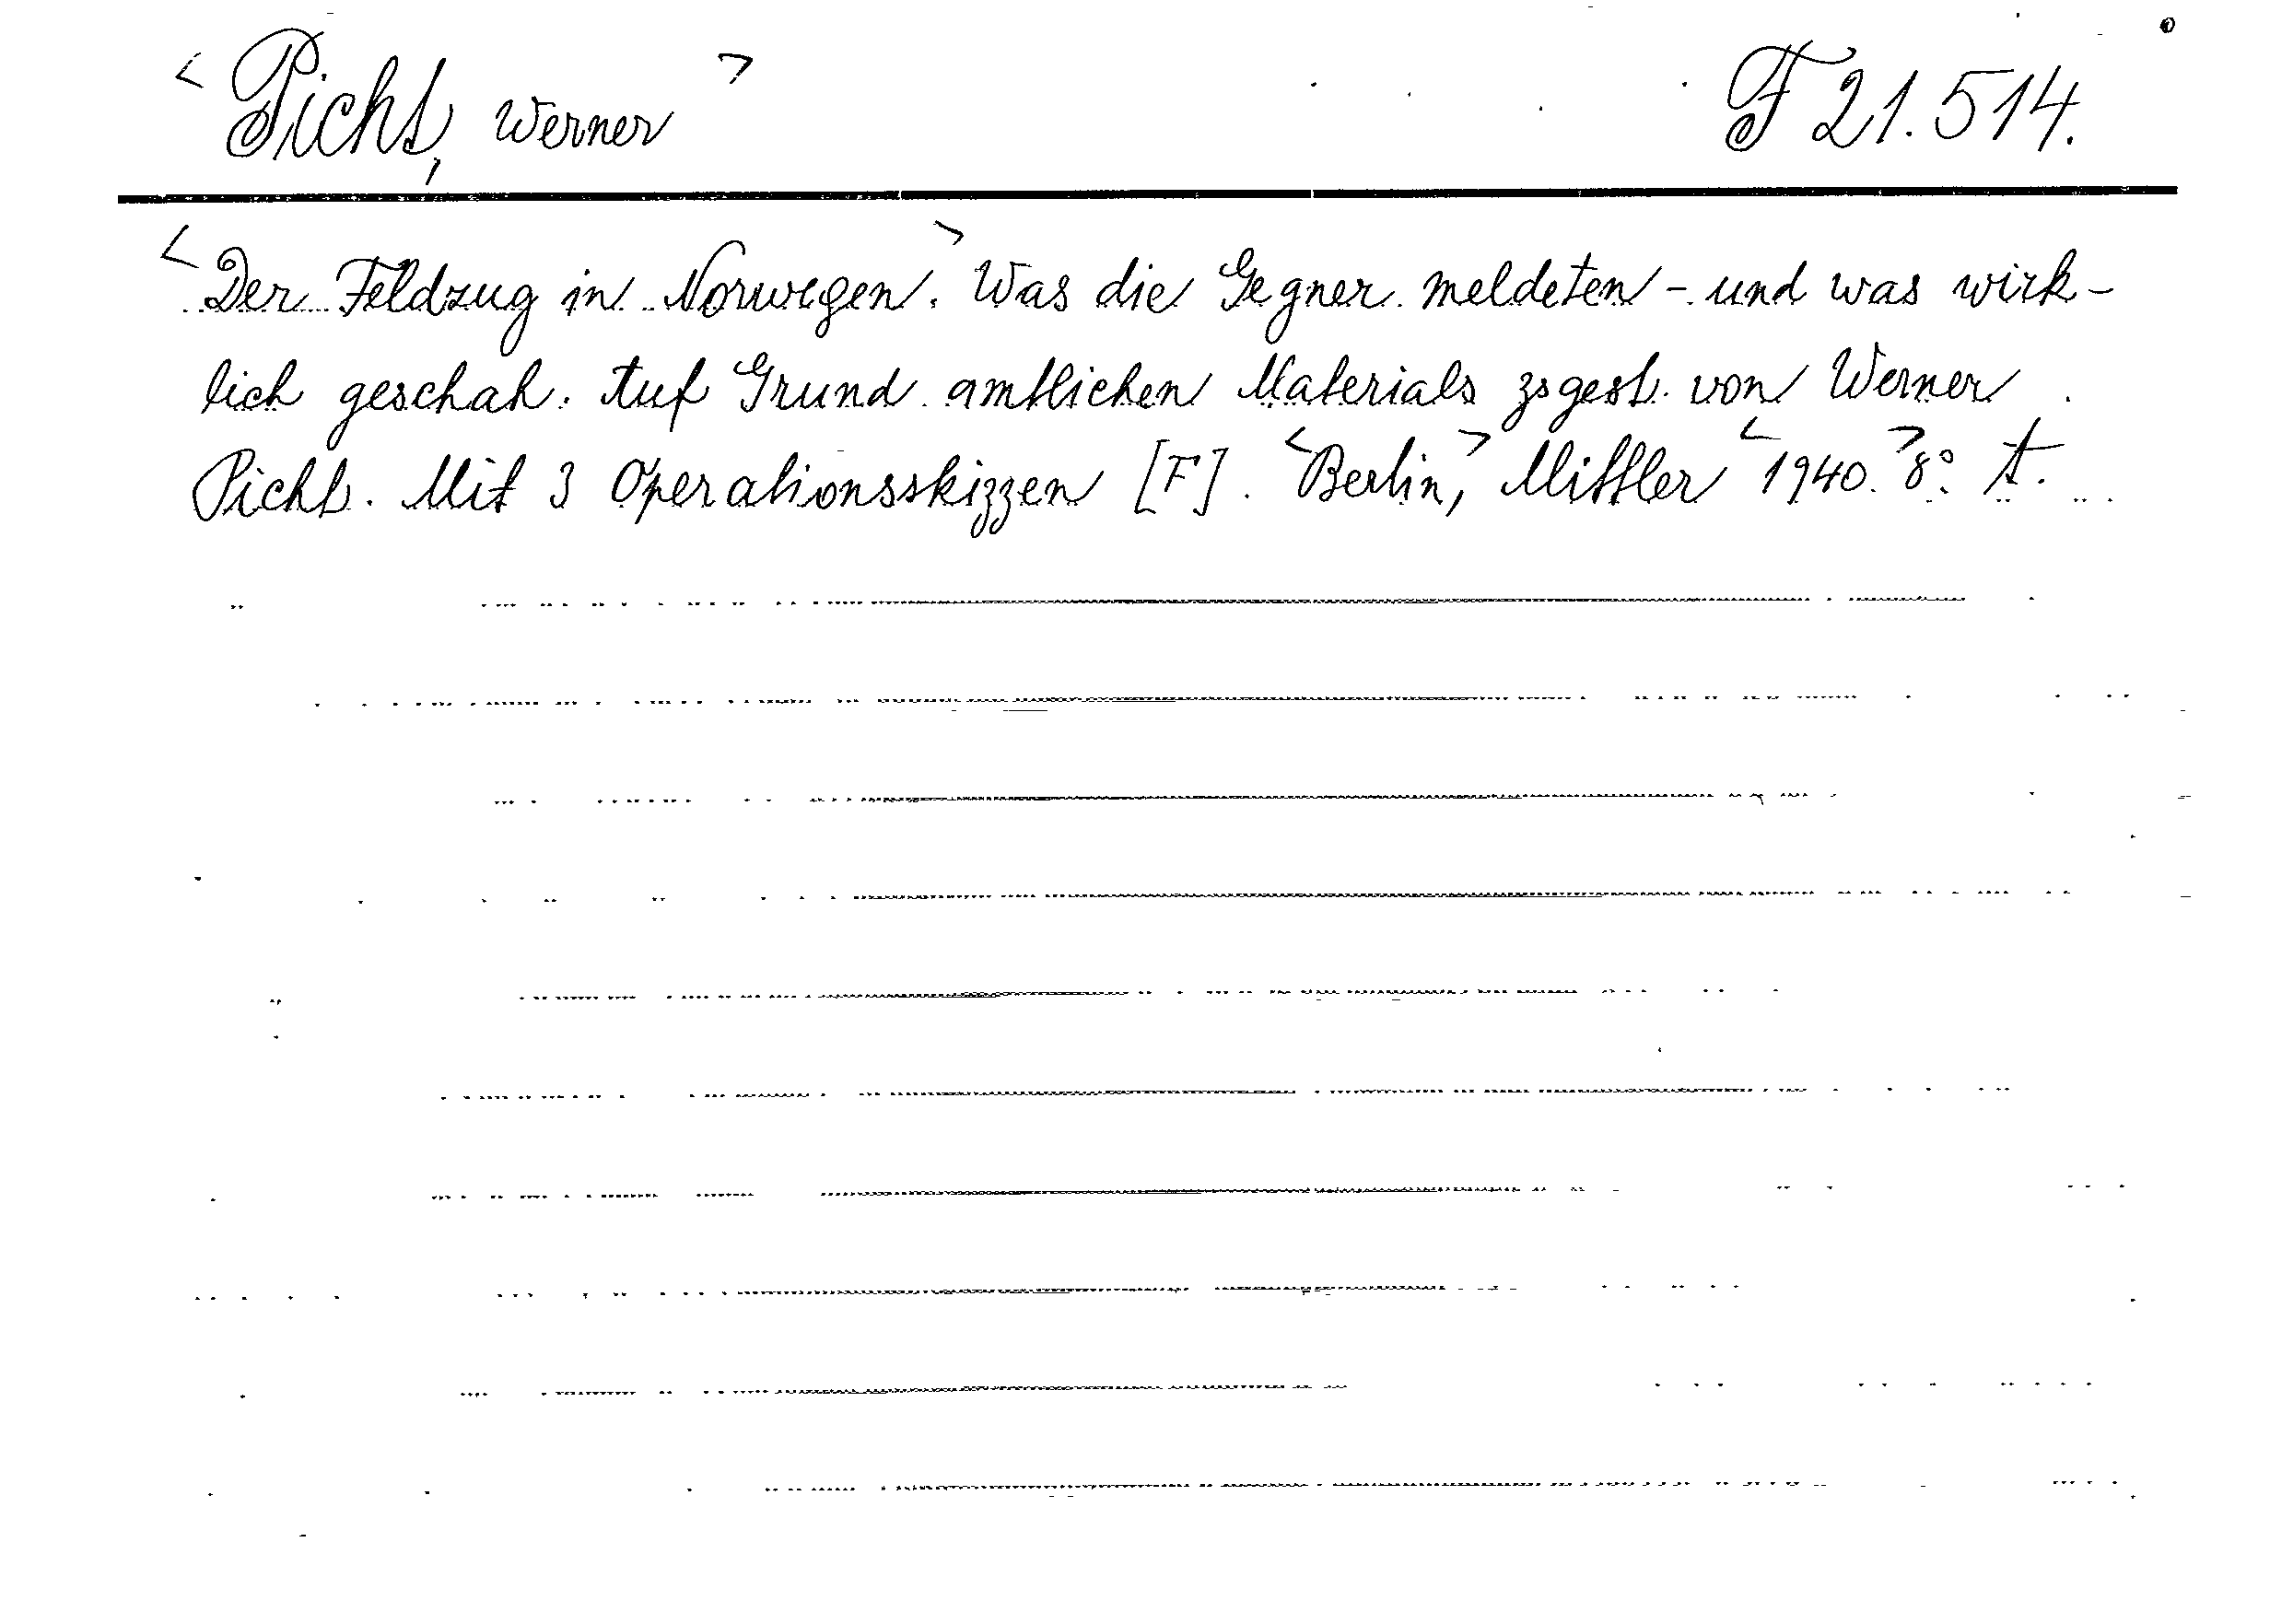 < Picht, Werner > F 21.514.
< Der Feldzug in Norwegen. > Was die Gegner meldeten - und was wirk-
lich geschah. Auf Grund amtlichen Materials zsgest. von Werner
Picht. Mit 3 Operationsskizzen [F]. < Berlin, > Mittler < 1940. > 8° A.